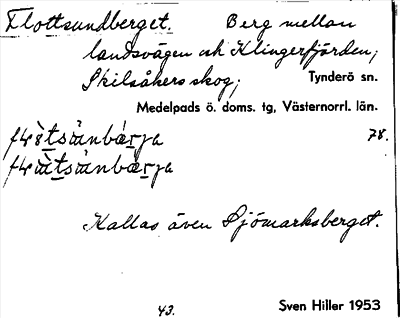 Flottsundberget. Berg mellan
landsvägen och Klingerfjärden;
Skilsåkers skog; Tynderö sn.
Medelpads ö. doms. tg, Västernorrl. län.
78.
Kallas även Sjömarksberget.
43. Sven Hiller 1953